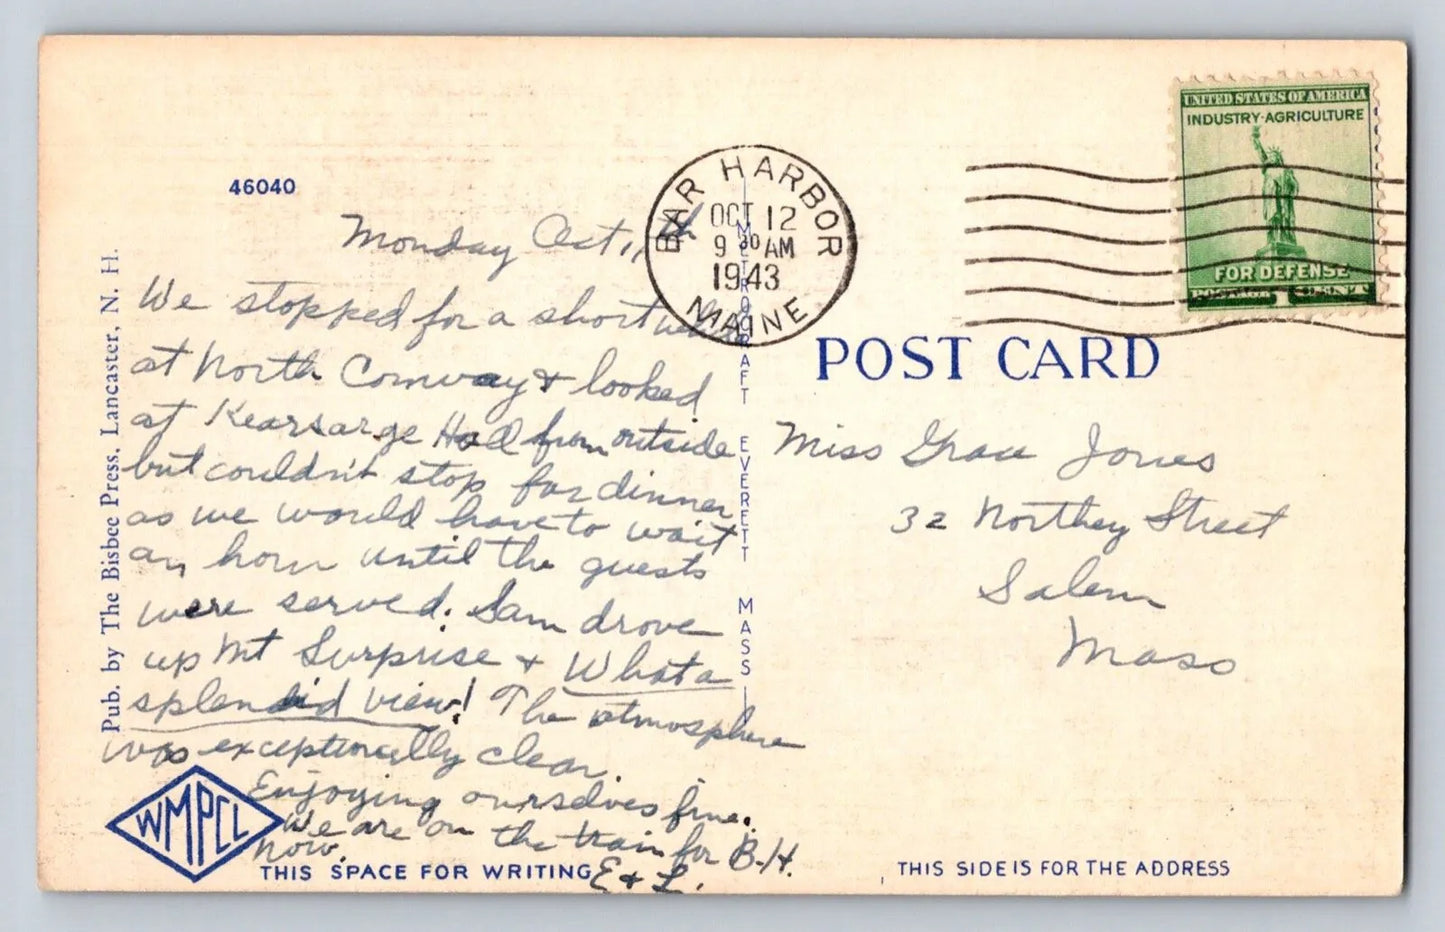 46040
Monday Oct 11,
We stopped for a short while
at North Conway & looked
at Kearsarge Hall from outside
but couldn't stop for dinner
as we would have to wait
an hour until the guests
were served. Sam drove
up Mt Surprise & What a
splendid view! The atmosphere
was exceptionally clear.
Enjoying ourselves fine.
We are on the train for B-H.
now.
E & L.
THIS SPACE FOR WRITING
WMPCL
Pub. by The Bisbee Press, Lancaster, N. H.
METROCRAFT EVERETT MASS
BAR HARBOR
OCT 12
9 30 AM
1943
MAINE
UNITED STATES OF AMERICA
INDUSTRY·AGRICULTURE
FOR DEFENSE
POSTAGE 1 CENT
POST CARD
Miss Grace Jones
32 Northey Street
Salem
Mass
THIS SIDE IS FOR THE ADDRESS